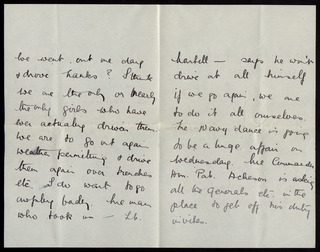 We went out one day
& drove tanks? I think
we are the only or nearly
the only girls who have
ever actually driven them.
We are to go out again
weather permitting & drive
them again over trenches
etc. I do want to go
awfully badly. The man
who took us — Lt.
— says he won't
drive at all himself
if we go again, we are
to do it all ourselves.
The Navy dance is going
to be a huge affair on
Wednesday. The Commander
Hon. Pat. Acheson is asking
all the Generals etc. in the
place to get off his duty
invites.